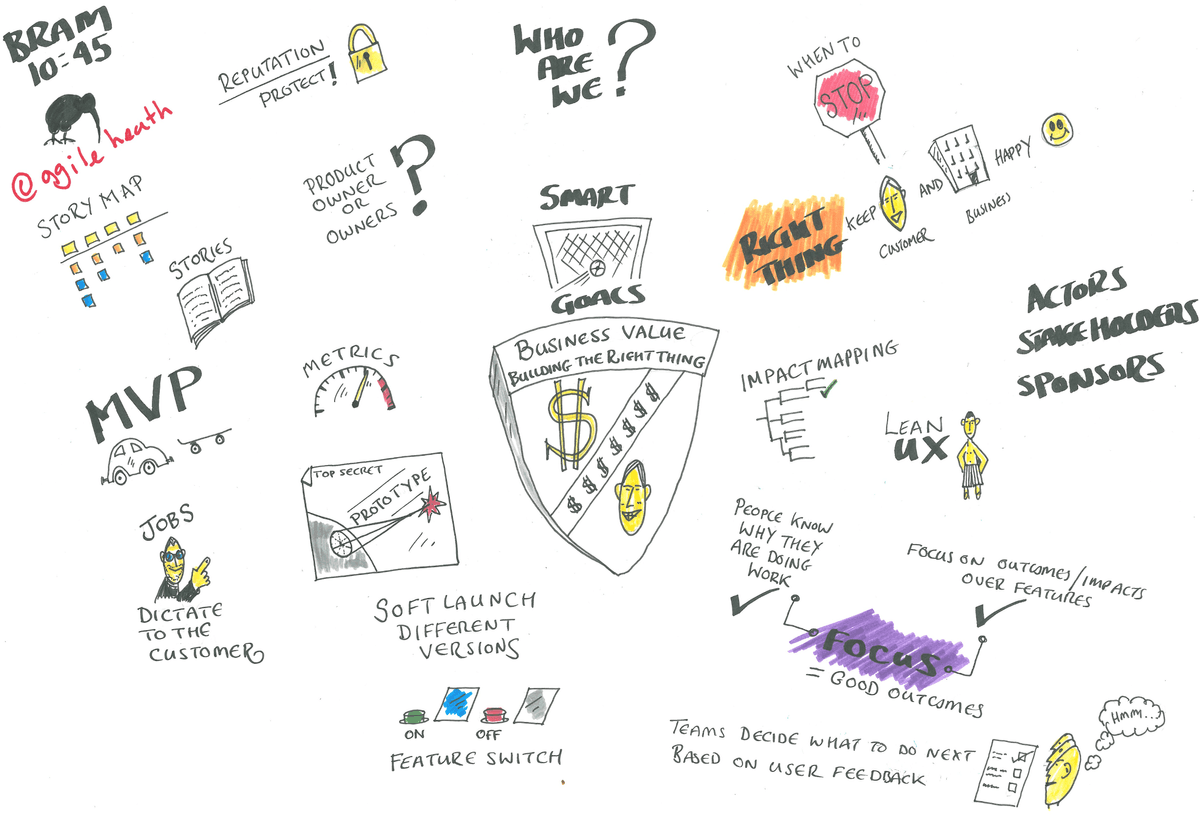 BRAM
10:45
@agile heath
REPUTATION
PROTECT!
WHO
ARE
WE?
WHEN TO
STOP
KEEP
CUSTOMER
AND
BUSINESS
HAPPY
RIGHT
THING
STORY MAP
STORIES
PRODUCT
OWNER
OR
OWNERS?
SMART
GOALS
ACTORS
STAKEHOLDERS
SPONSORS
MVP
METRICS
BUSINESS VALUE
BUILDING THE RIGHT THING
$
$ $ $ $ $ $
IMPACT MAPPING
LEAN
UX
TOP SECRET
PROTOTYPE
JOBS
DICTATE
TO THE
CUSTOMER
SOFT LAUNCH
DIFFERENT
VERSIONS
ON
OFF
FEATURE SWITCH
PEOPLE KNOW
WHY THEY
ARE DOING
WORK
FOCUS ON OUTCOMES/IMPACTS
OVER FEATURES
FOCUS
= GOOD OUTCOMES
TEAMS DECIDE WHAT TO DO NEXT
BASED ON USER FEEDBACK
HMMM...